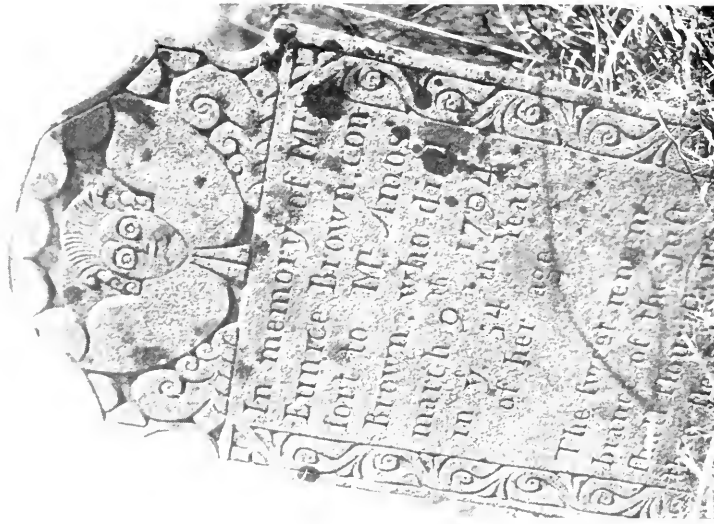 In memory of Mrs
Eunice Brown, con
ſort to Mr Amos
Brown, who died
march 9th 1794
in ye 54th Year
of her age
The ſweet remem
brance of the Juſt